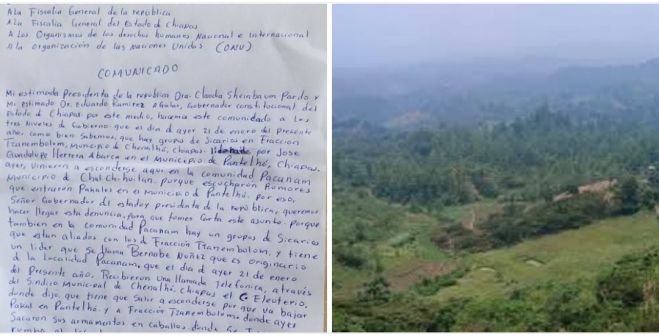 A la Fiscalia General de la república
A la Fiscalia General del Estado de Chiapas
A Los Organismos de los derechos humanos Nacional e internacional
A la organización de las naciones Unidas (ONU)
COMUNICADO
Mi estimada Presidenta de la republica Dra. Claudia Sheinbaum Pardo y
Mi estimado Dr. Eduardo Ramirez Aguilar, Gobernador constitucional del
Estado de Chiapas por este medio, hacemos este comunicado a los
tres Niveles de Gobierno que el dia d ayer 21 de enero del presente
año, como bien Sabemos, que hay grupo de Sicarios en Fraccion
Tzanembolom, Municipio de Chenalhó, Chiapas. por Jose
Guadalupe Herrera Abarca en el Municipio de Pantelhó, Chiapas.
ayer, vinieron a esconderse aqui en la comunidad Pacanam
Municipio de Chalchihuitan. porque escucharon Rumores
que entraron Pakales en el Municipio d Pantelhó. por eso,
Señor Gobernador del estado y presidenta de la república, queremos
hacer llegar esta denuncia, para que tomes Carta este asunto. porque
tambien en la comunidad Pacanam hay un grupos de Sicarios
que estan aliados con los d Fracción Tzanembolom, y tiene
un lider que se llama Bernabe Nuñez que es originario
d la Localidad Pacanam, que el dia d ayer 21 de enero
del Presente año. Recibieron una llamada Telefonica, a través
del Sindico Municipal de Chenalhó, Chiapas el C Eleuterio,
donde dijo, que tiene que Salir a esconderse por que va bajar
Pakal en Pantelhó. y a Fracción Tzanembolom. donde ayer
Sacaron sus armamentos en caballos donde
rumbo al